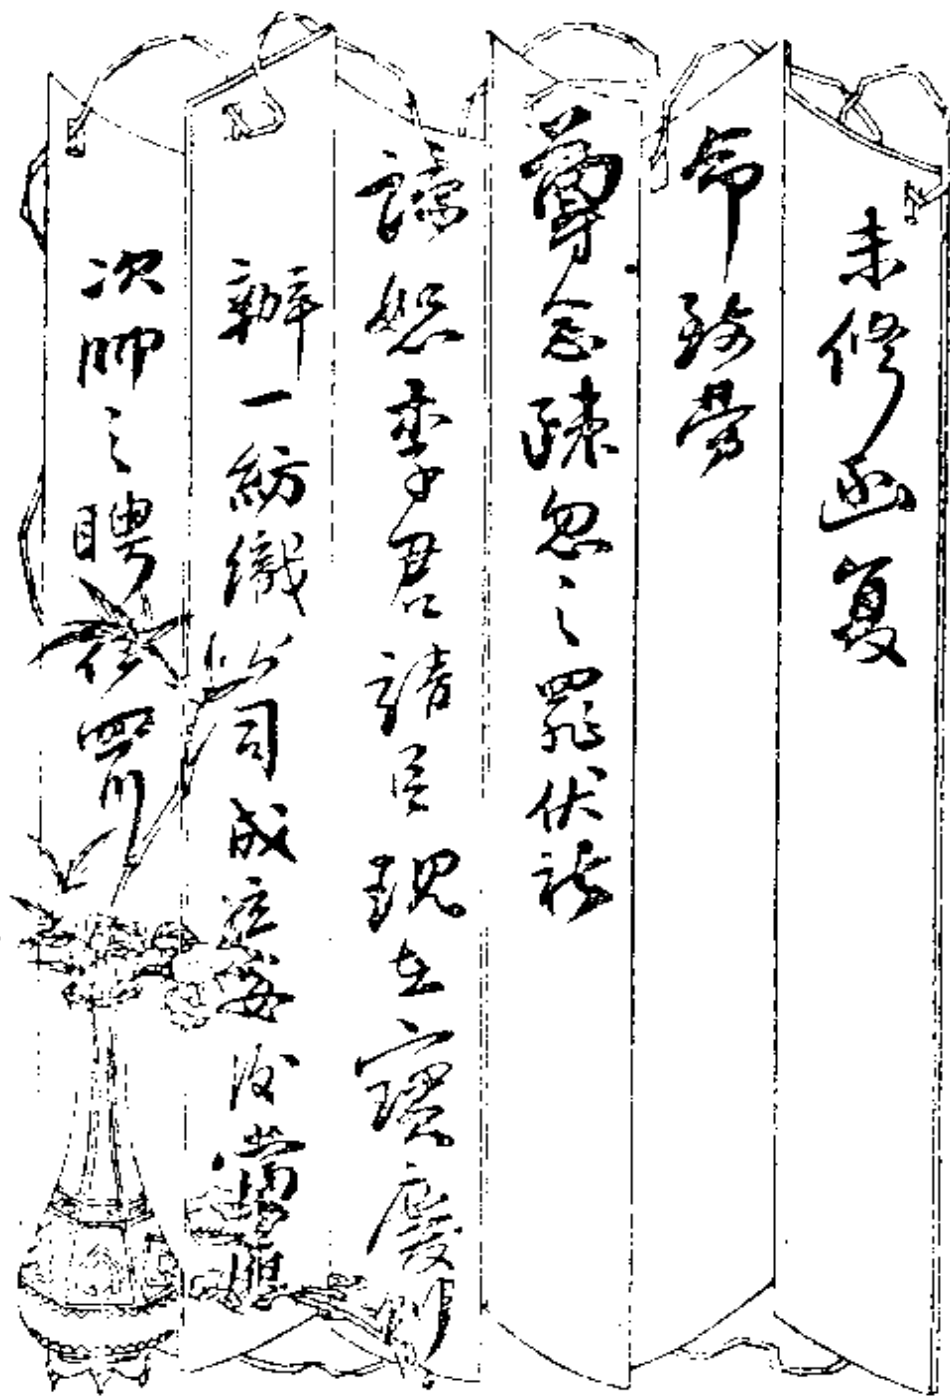 未修函复
命致劳
尊念疎忽之罪伏祈
諒恕季君請官現在寶慶開
辦一紡織公司成立妥后當應
次帥之聘徃四川